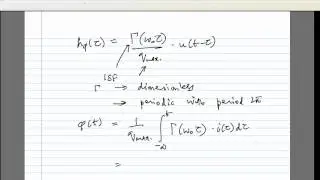 hφ(τ) = Γ(ω₀τ) / qmax. · u(t-τ)
ISF
Γ → dimensionless
→ periodic with period 2π
φ(t) = 1/qmax. ∫_{-∞}^{t} Γ(ω₀τ) · i(τ) dτ
=